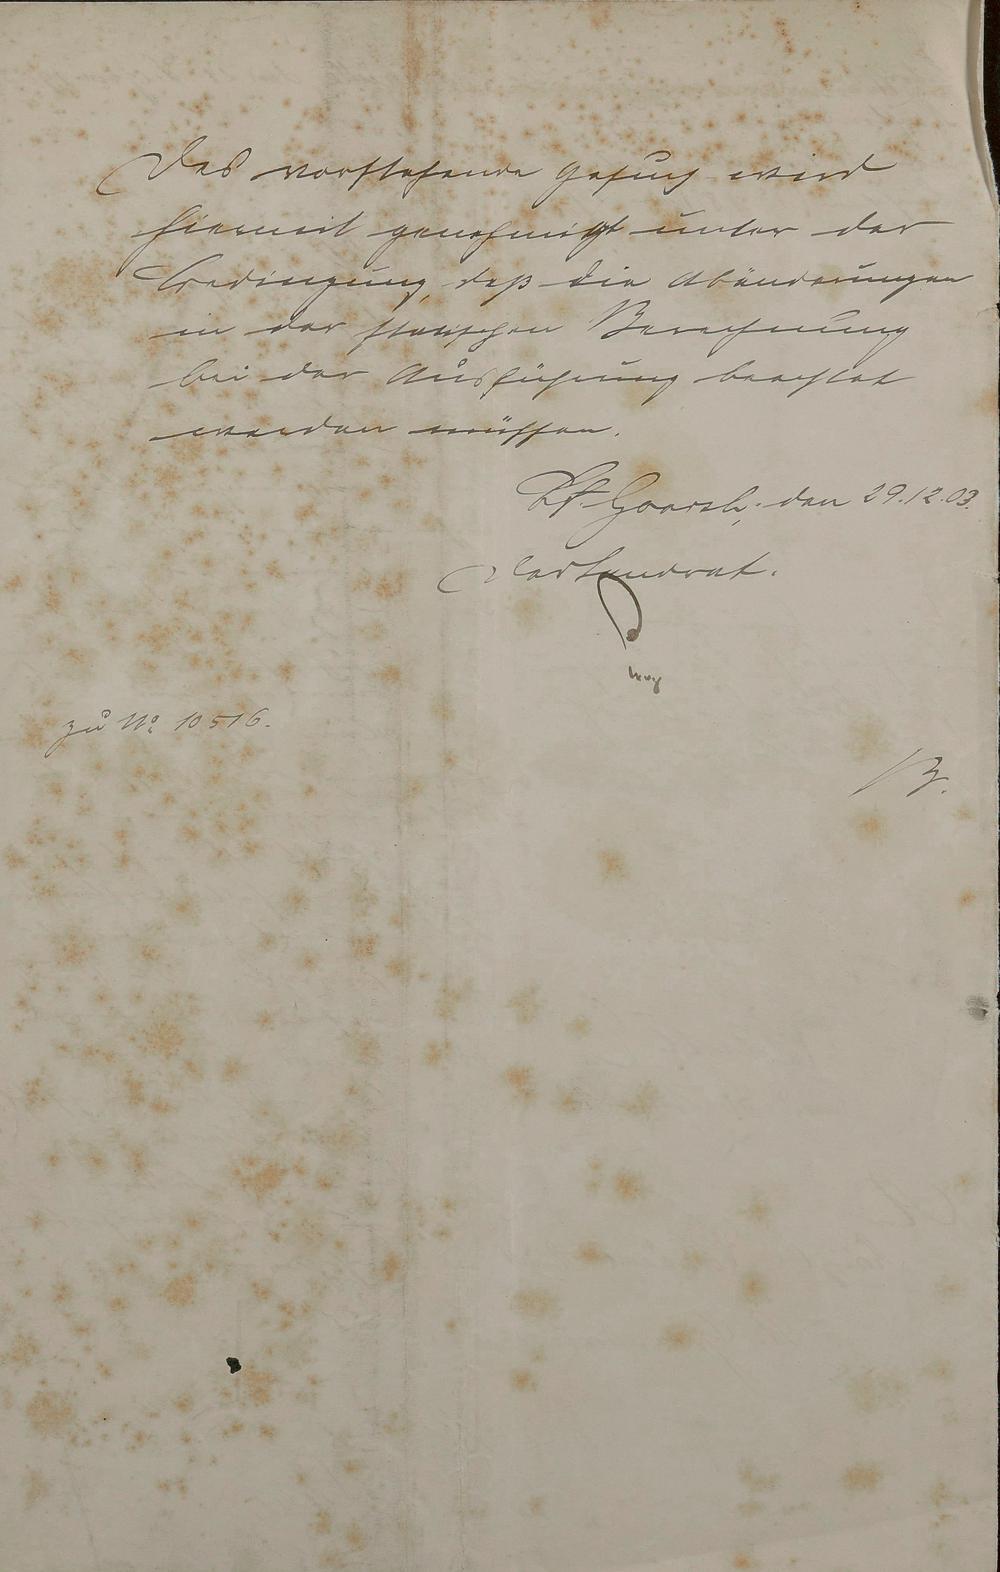 Das vorstehende Gesuch wird
hiermit genehmigt unter der
Bedingung, daß die Abänderungen
in der statischen Berechnung
bei der Ausführung beachtet
werden müssen.
St. Goarsh., den 29.12.03.
Der Landrat.
zu No 10516.
B.